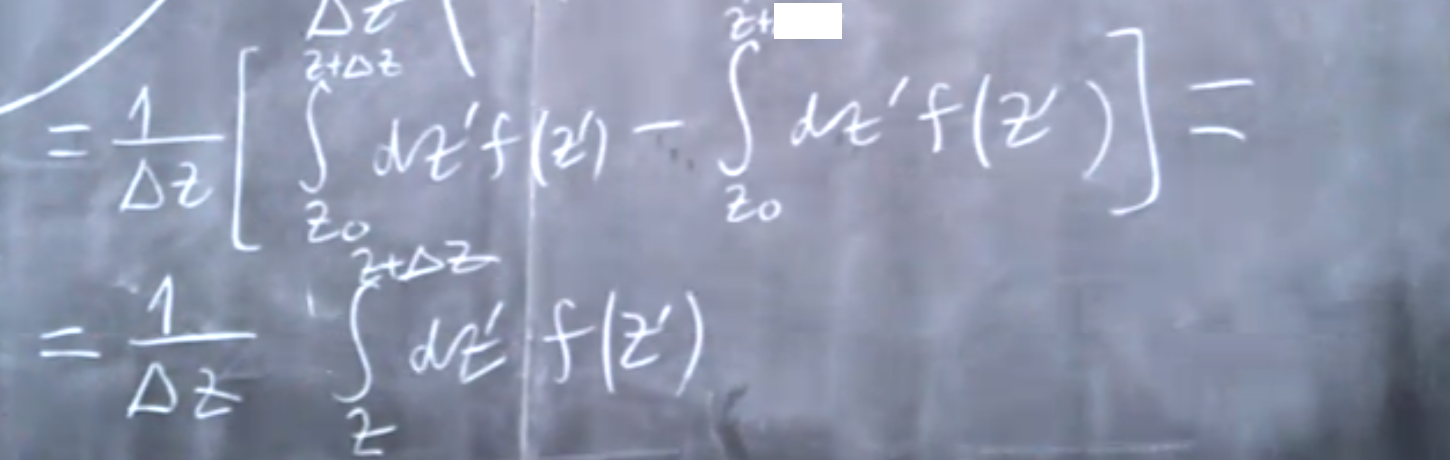 Δz
= 1/Δz [ ∫_{z0}^{z+Δz} dz' f(z') − ∫_{z0}^{z+} dz' f(z') ] =
= 1/Δz ∫_{z}^{z+Δz} dz' f(z')